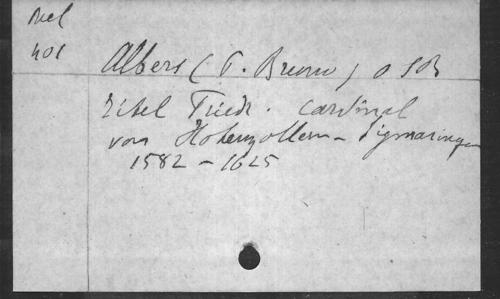 Mel
401
Albers (P. Bruno) O S B
Eitel Friedr. Cardinal
von Hohenzollern - Sigmaringen
1582 - 1625